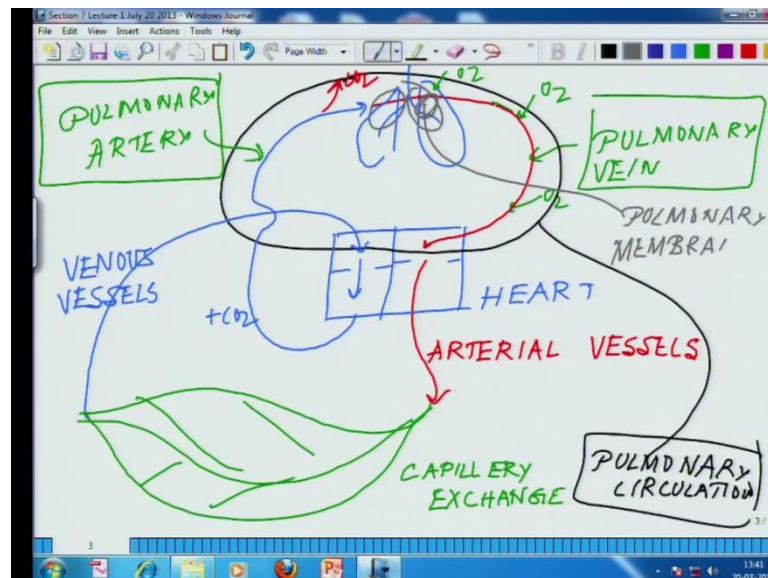 Section 7 Lecture 1 July 20 2013 - Windows Journal
File Edit View Insert Actions Tools Help
Page Width
B I
CO2
O2
O2
PULMONARY
ARTERY
PULMONARY
VEIN
O2
PULMONARY
MEMBRAI
VENOUS
VESSELS
HEART
+CO2
ARTERIAL VESSELS
CAPILLERY
EXCHANGE
PULMONARY
CIRCULATION
3
13:41